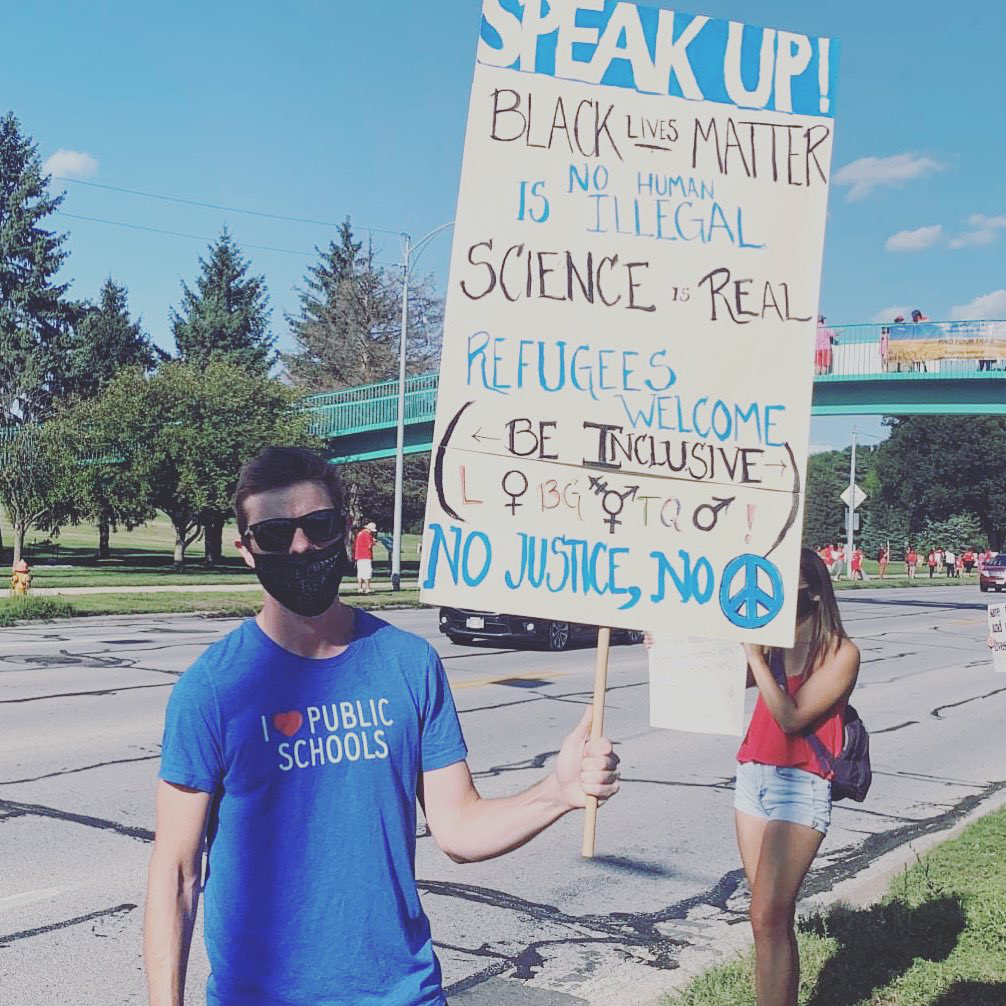 SPEAK UP!
BLACK LIVES MATTER
NO HUMAN
IS ILLEGAL
SCIENCE IS REAL
REFUGEES
WELCOME
(← BE INCLUSIVE →)
L ♀ BG ⚧ TQ ♂ !
NO JUSTICE, NO ☮
I ❤ PUBLIC
SCHOOLS
FIND YOUR TRAIL